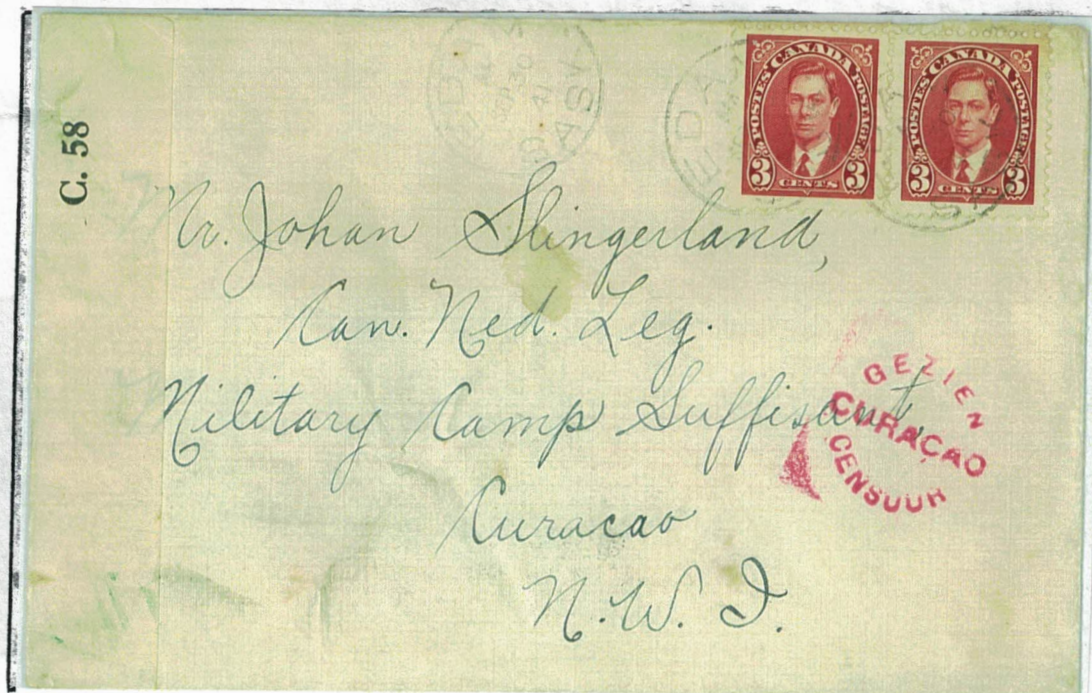 C. 58
POSTES CANADA POSTAGE
3 CENTS 3
POSTES CANADA POSTAGE
3 CENTS 3
Mr. Johan Slingerland,
Can. Ned. Leg.
Military Camp Suffisant,
Curacao
N.W.I.
GEZIEN
CURAÇAO
CENSUUR